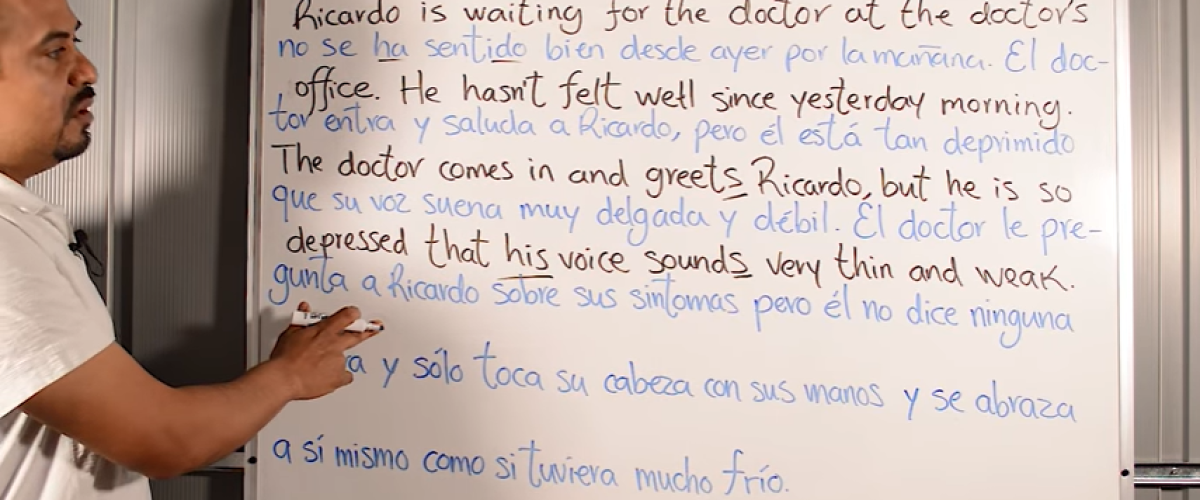 Ricardo is waiting for the doctor at the doctor's
no se ha sentido bien desde ayer por la mañana. El doc-
office. He hasn't felt well since yesterday morning.
tor entra y saluda a Ricardo, pero él está tan deprimido
The doctor comes in and greets Ricardo, but he is so
que su voz suena muy delgada y débil. El doctor le pre-
depressed that his voice sounds very thin and weak.
gunta a Ricardo sobre sus sintomas pero él no dice ninguna
y sólo toca su cabeza con sus manos y se abraza
a sí mismo como si tuviera mucho frío.